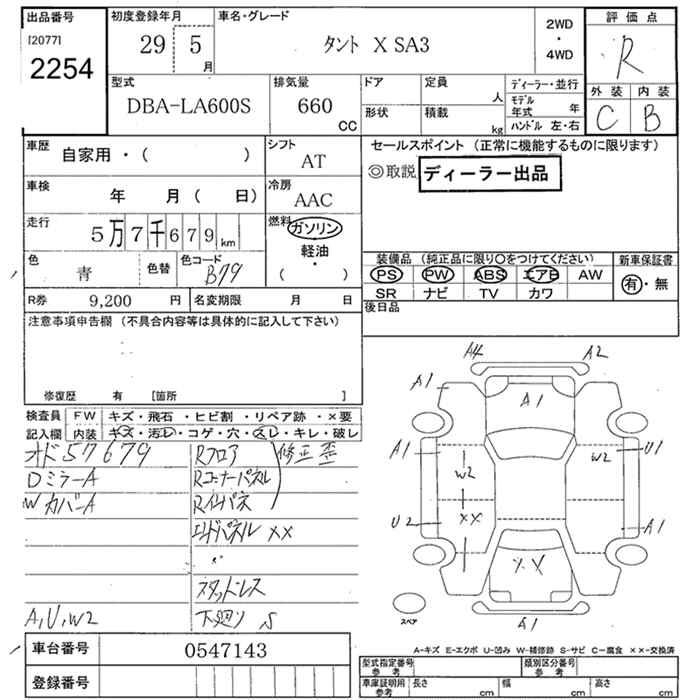 出品番号
[2077]
2254
初度登録年月
29 5
月
車名・グレード
タント X SA3
2WD
・
4WD
評価点
R
外装 内装
C B
型式
DBA-LA600S
排気量
660
CC
ドア
形状
定員
人
積載
kg
ディーラー・並行
モデル
年式 年
ハンドル 左・右
車歴
自家用・( )
シフト
AT
車検
年 月( 日)
冷房
AAC
走行
5万7千679km
燃料
ガソリン
軽油・
( )
色
青
色替
色コード
B79
R券 9,200 円
名変期限 月 日
セールスポイント (正常に機能するものに限ります)
◎取説 ディーラー出品
装備品 (純正品に限り○をつけてください)
PS PW ABS エアB AW
SR ナビ TV カワ
新車保証書
有・無
後日品
注意事項申告欄 (不具合内容等は具体的に記入して下さい)
修復歴 有 [箇所 ]
検査員
記入欄
FW キズ・飛石・ヒビ割・リペア跡・×要
内装 キズ・汚レ・コゲ・穴・スレ・キレ・破レ
オド57679
Dミラー A
Wカバー A
A,U,W2
Rフロア
Rコーナーパネル
Rインパネ
修正歪
エンドパネル ××
スタッドレス
下廻り S
A4 A2
A1 A1
A1 U1
W2 W2
U2 ×× A1
××
A1
スペア
A-キズ E-エクボ U-凹み W-補修跡 S-サビ C-腐食 ××-交換済
車台番号 0547143
登録番号
型式指定番号
参考
類別区分番号
参考
車庫証明用
参考
長さ cm 幅 cm 高さ cm